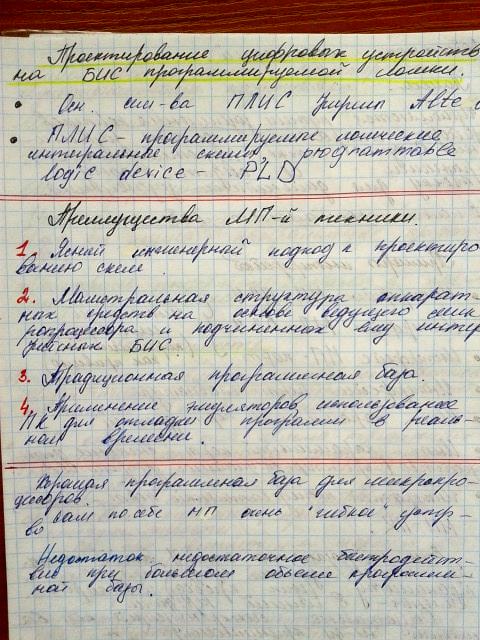 Проектирование цифровых устройств
на БИС программируемой логики.
• Осн. сем-ва ПЛИС фирмы Alte
• ПЛИС - программируемые логические
интегральные схемы, programmable
logic device - PLD
Преимущества МП-й техники.
1. Ясный инженерный подход к проектиро
ванию схем.
2. Магистральная структура аппарат-
ных средств на основе ведущего микро
процессора и подчиненных ему интер
фейсных БИС.
3. Традиционная программная база.
4. Применение эмуляторов, использование
ПК для отладки программ в реаль-
ном времени.
Хорошая программная база для микропро-
цессоров
Сам по себе МП очень "гибкое" устр-
во
Недостаток: недостаточное быстродейст-
вие при большом объеме программ-
ной базы.